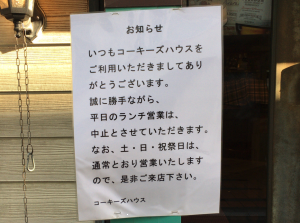 お知らせ
いつもコーキーズハウスを
ご利用いただきましてあり
がとうございます。
誠に勝手ながら、
平日のランチ営業は、
中止とさせていただきます。
なお、土・日・祝祭日は、
通常とおり営業いたします
ので、是非ご来店下さい。
コーキーズハウス